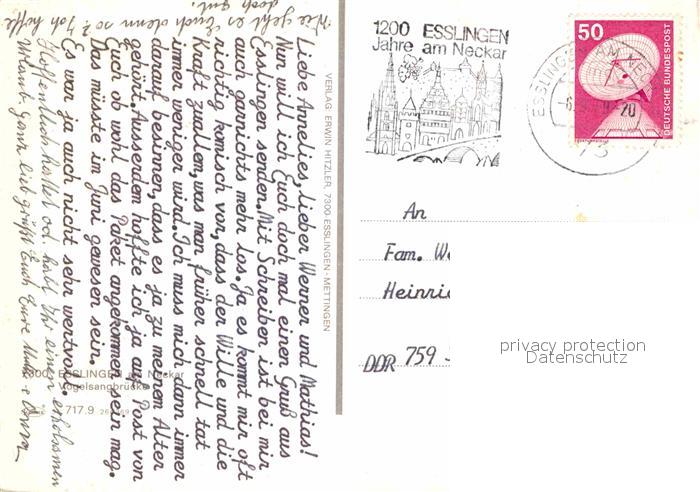 Liebe Annelies, lieber Werner und Mathias!
Nun will ich Euch doch mal einen Gruß aus
Esslingen senden. Mit Schreiben ist bei mir
auch garnichts mehr los. Ja es kommt mir oft
richtig komisch vor, dass der Wille und die
Kraft zuallem, was man früher schnell tat
immer weniger wird. Ich muss mich dann immer
darauf besinnen, dass es ja zu meinem Alter
gehört. Ausserdem hoffte ich ja auf Post von
Euch ob wohl das Paket angekommen sein mag.
Das müsste im Juni gewesen sein.
Es war ja auch nicht sehr wertvoll.
Hoffentlich hattet od. habt Ihr einen erholsamen
Urlaub. Ganz lieb grüßt Euch Eure
Wie geht es Euch denn so? Ich hoffe
doch gut.
VERLAG ERWIN HITZLER, 7300 ESSLINGEN-METTINGEN
7300 ESSLINGEN am Neckar
Vogelsangbrücke
717.9
1200 ESSLINGEN
Jahre am Neckar
ESSLINGEN AM
-6.
-20
73
50
DEUTSCHE BUNDESPOST
An
Fam.
DDR 759
privacy protection
Datenschutz